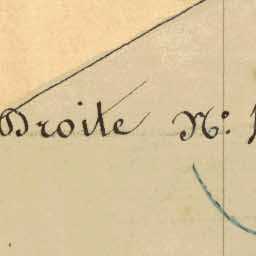 Droite No: